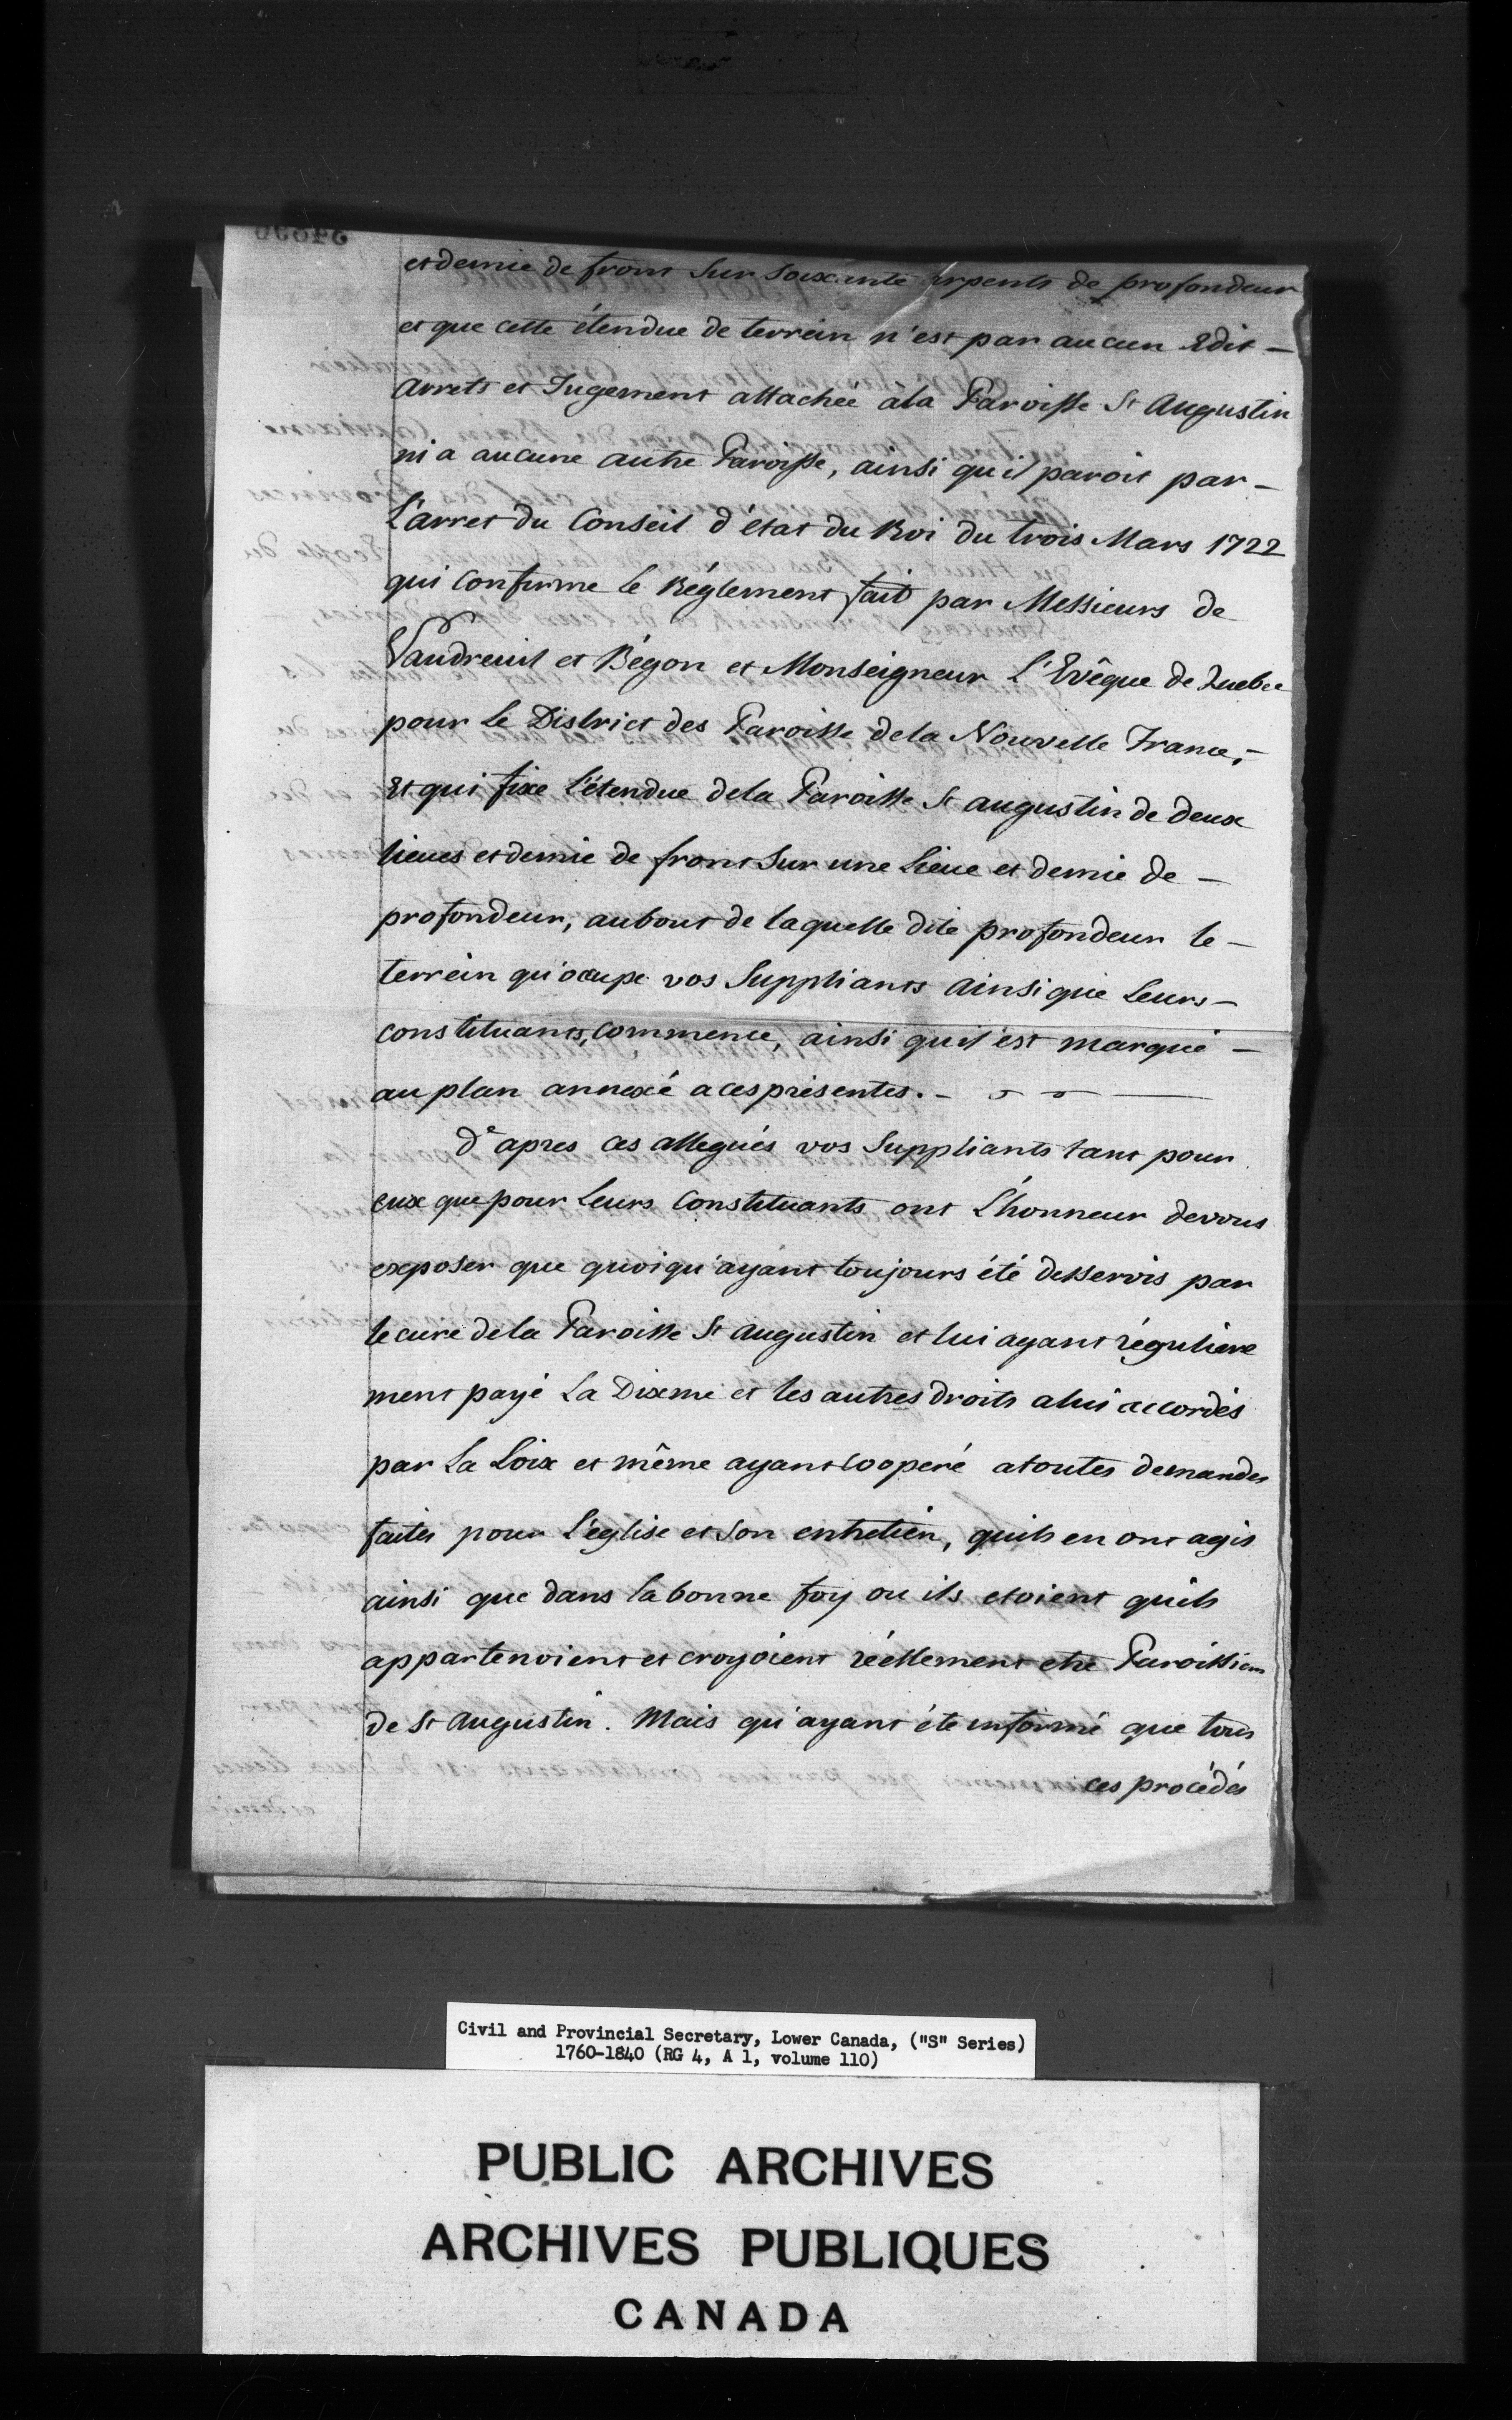 et demie de front Sur Soixante arpents de profondeur
et que cette étendue de terrein n'est par aucun Edit –
Arrets et Jugement attachée à la Paroisse St Augustin
ni a aucune autre Paroisse, ainsi qu'il paroit par –
L'arret du Conseil d'état du Roi du trois Mars 1722
qui Confirme le Réglement fait par Messieurs de
Vaudreuil et Bégon et Monseigneur L'Evêque de Quebec
pour Le District des Paroisse de la Nouvelle France, –
Et qui fixe L'étendue de la Paroisse St augustin de deux
lieues et demie de front Sur une Lieue et demie de –
profondeur, au bout de laquelle dite profondeur le –
terrein qu'occupe vos Suppliants Ainsi que Leurs –
constituants, commence, ainsi qu'il est marqué –
au plan annexé a ces présentes. –
D'apres ces allegués vos Suppliants tant pour
eux que pour Leurs Constituants ont L'honneur de vous
exposer que quoiqu'ayant toujours été desservis par
le curé de la Paroisse St Augustin et lui ayant réguliere
ment payé La Dixme et les autres droits a lui accordés
par La Loix et même ayant Coopéré a toutes demandes
faites pour L'eglise et Son entretien, quils en ont agis
ainsi que dans la bonne foy ou ils etoient quils
appartenoient et croyoient réellement etre Paroissiens
de St Augustin. Mais qu'ayant été informé que tous
ces procédés
Civil and Provincial Secretary, Lower Canada, ("S" Series)
1760-1840 (RG 4, A 1, volume 110)
PUBLIC ARCHIVES
ARCHIVES PUBLIQUES
CANADA